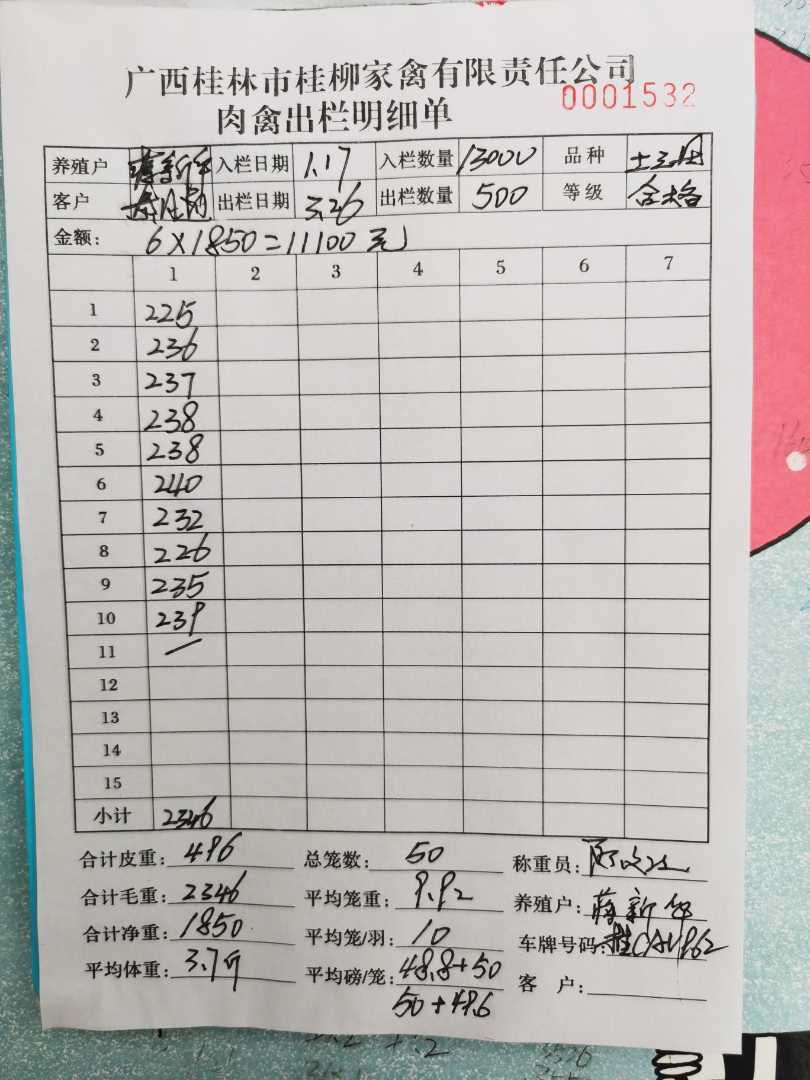 广西桂林市桂柳家禽有限责任公司
肉禽出栏明细单 0001532
养殖户 蒋新华 入栏日期 1.17 入栏数量 13000 品种
客户 出栏日期 3.26 出栏数量 500 等级 合格
金额: 6×1850=11100元
1 2 3 4 5 6 7
1 225
2 236
3 237
4 238
5 238
6 240
7 232
8 226
9 235
10 239
11 —
12
13
14
15
小计 2346
合计皮重: 496 总笼数: 50 称重员:
合计毛重: 2346 平均笼重: 9.92 养殖户: 蒋新华
合计净重: 1850 平均笼/羽: 10 车牌号码:
平均体重: 3.7斤 平均磅/笼: 48.8+50 客 户:
50+48.6